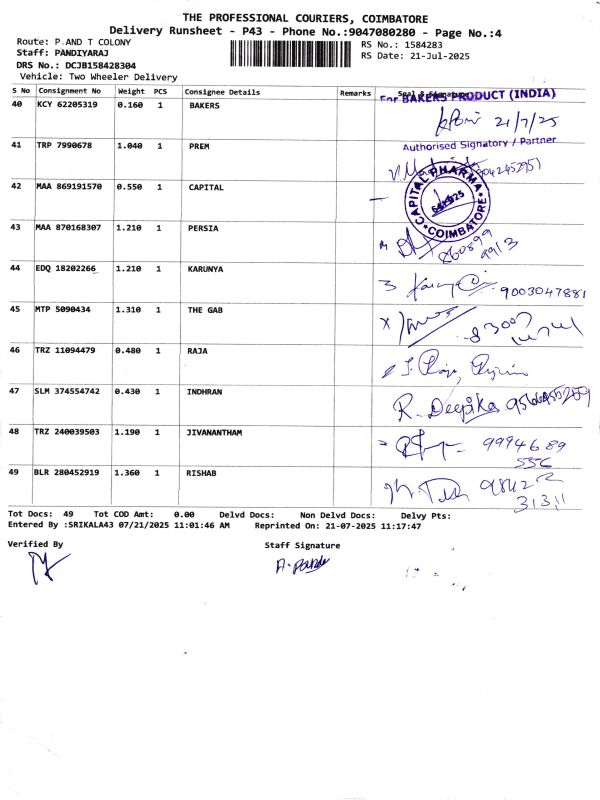 THE PROFESSIONAL COURIERS, COIMBATORE
Delivery Runsheet - P43 - Phone No.:9047080280 - Page No.:4
Route: P.AND T COLONY
Staff: PANDIYARAJ
DRS No.: DCJB158428304
Vehicle: Two Wheeler Delivery
RS No.: 1584283
RS Date: 21-Jul-2025
S No Consignment No Weight PCS Consignee Details Remarks Seal & Signature
For BAKERS PRODUCT (INDIA)
40 KCY 62205319 0.160 1 BAKERS
21/7/25
Authorised Signatory / Partner
41 TRP 7990678 1.040 1 PREM
42 MAA 869191570 0.550 1 CAPITAL
CAPITAL PHARMA
COIMBATORE
43 MAA 870168307 1.210 1 PERSIA
860899
9913
44 EDQ 18202266 1.210 1 KARUNYA
9003047881
45 MTP 5090434 1.310 1 THE GAB
83007
46 TRZ 11094479 0.480 1 RAJA
47 SLM 374554742 0.430 1 INDHRAN
R. Deepika
48 TRZ 240039503 1.190 1 JIVANANTHAM
9994689
556
49 BLR 280452919 1.360 1 RISHAB
98422
31311
Tot Docs: 49 Tot COD Amt: 0.00 Delvd Docs: Non Delvd Docs: Delvy Pts:
Entered By :SRIKALA43 07/21/2025 11:01:46 AM Reprinted On: 21-07-2025 11:17:47
Verified By Staff Signature